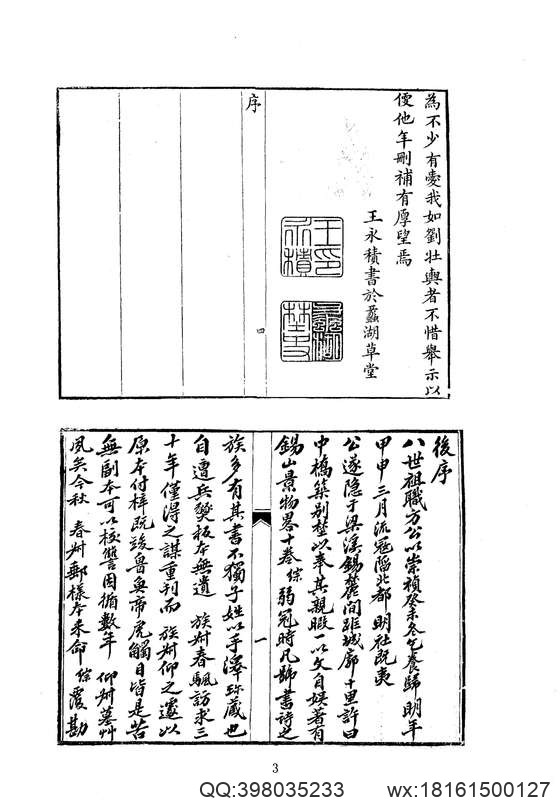 為不少有愛我如劉壯輿者不惜舉示以
便他年刪補有厚望焉
王永積書於蠡湖草堂
王永積印
蠡湖野史
序
四
後序
八世祖職方公以崇禎癸未冬乞養歸明年
甲申三月流寇陷北都明社既夷
公遂隱于梁溪錫麓間距城廓十里許曰
中橋築別墅以奉其親暇一以文自娛著有
錫山景物畧十卷綜弱冠時凡號書詩之
族多有其書不獨子姓以手澤珍藏也
自遭兵燹板本無遺族叔春颿訪求三
十年僅得之謀重刊而族叔仰之遽以
原本付梓既竣魯魚帝虎觸目皆是苦
無副本可以校讐因循數年仰叔墓艸
夙矣今秋春叔郵樣本来命綜覆勘
一
3
QQ:398035233
wx:18161500127